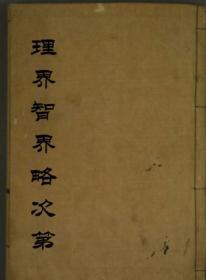 理界智界略次第